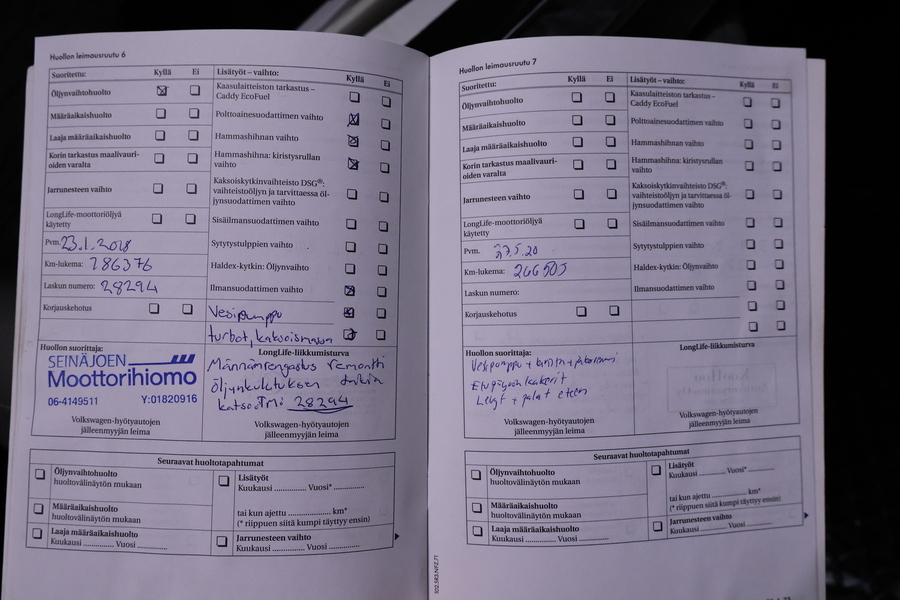 Huollon leimausruutu 6
Suoritettu: Kyllä Ei
Öljynvaihtohuolto
Määräaikaishuolto
Laaja määräaikaishuolto
Korin tarkastus maalivauri-
oiden varalta
Jarrunesteen vaihto
LongLife-moottoriöljyä
käytetty
Pvm. 23.1.2018
Km-lukema: 286376
Laskun numero: 28294
Korjauskehotus
Lisätyöt – vaihto: Kyllä Ei
Kaasulaitteiston tarkastus –
Caddy EcoFuel
Polttoainesuodattimen vaihto
Hammashihnan vaihto
Hammashihna: kiristysrullan
vaihto
Kaksoiskytkinvaihteisto DSG®:
vaihteistoöljyn ja tarvittaessa öl-
jynsuodattimen vaihto
Sisäilmansuodattimen vaihto
Sytytystulppien vaihto
Haldex-kytkin: Öljynvaihto
Ilmansuodattimen vaihto
Vesipumppu
turbot,
Huollon suorittaja:
SEINÄJOEN
Moottorihiomo
06-4149511 Y:01820916
Volkswagen-hyötyautojen
jälleenmyyjän leima
LongLife-liikkumisturva
Männänrengastus remontti
öljynkulutuksen takia
katso 28294
Volkswagen-hyötyautojen
jälleenmyyjän leima
Seuraavat huoltotapahtumat
Öljynvaihtohuolto
huoltovälinäytön mukaan
Määräaikaishuolto
huoltovälinäytön mukaan
Laaja määräaikaishuolto
Kuukausi .............. Vuosi ..............
Lisätyöt
Kuukausi .............. Vuosi* ..............
tai kun ajettu .................... km*
(* riippuen siitä kumpi täyttyy ensin)
Jarrunesteen vaihto
Kuukausi .............. Vuosi ..............
Huollon leimausruutu 7
Suoritettu: Kyllä Ei
Öljynvaihtohuolto
Määräaikaishuolto
Laaja määräaikaishuolto
Korin tarkastus maalivauri-
oiden varalta
Jarrunesteen vaihto
LongLife-moottoriöljyä
käytetty
Pvm. 27.5.20
Km-lukema: 266505
Laskun numero:
Korjauskehotus
Lisätyöt – vaihto: Kyllä Ei
Kaasulaitteiston tarkastus –
Caddy EcoFuel
Polttoainesuodattimen vaihto
Hammashihnan vaihto
Hammashihna: kiristysrullan
vaihto
Kaksoiskytkinvaihteisto DSG®:
vaihteistoöljyn ja tarvittaessa öl-
jynsuodattimen vaihto
Sisäilmansuodattimen vaihto
Sytytystulppien vaihto
Haldex-kytkin: Öljynvaihto
Ilmansuodattimen vaihto
Huollon suorittaja:
Vesipumppu + +
+ palat eteen
Volkswagen-hyötyautojen
jälleenmyyjän leima
LongLife-liikkumisturva
Volkswagen-hyötyautojen
jälleenmyyjän leima
Seuraavat huoltotapahtumat
Öljynvaihtohuolto
huoltovälinäytön mukaan
Määräaikaishuolto
huoltovälinäytön mukaan
Laaja määräaikaishuolto
Kuukausi .............. Vuosi ..............
Lisätyöt
Kuukausi .............. Vuosi* ..............
tai kun ajettu .................... km*
(* riippuen siitä kumpi täyttyy ensin)
Jarrunesteen vaihto
Kuukausi .............. Vuosi ..............
102.5R3.NFZ.71